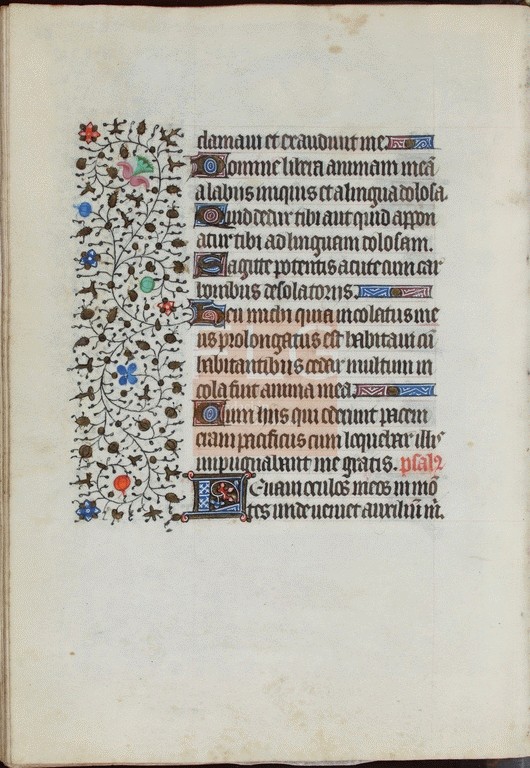 clamaui et exaudiuit me
Domine libera animam meā
a labiis iniquis et a lingua dolosa.
Quid detur tibi aut quid appon
atur tibi ad linguam dolosam.
Sagitte potentis acute cum car
bonibus desolatoriis.
Heu michi quia incolatus me
us prolongatus est habitaui cū
habitantibus cedar multum in
cola fuit anima mea.
Cum hiis qui oderunt pacem
eram pacificus cum loquebar illis
impugnabant me gratis. psal2
Leuaui oculos meos in mō
tes unde ueniet auxiliū m̄.